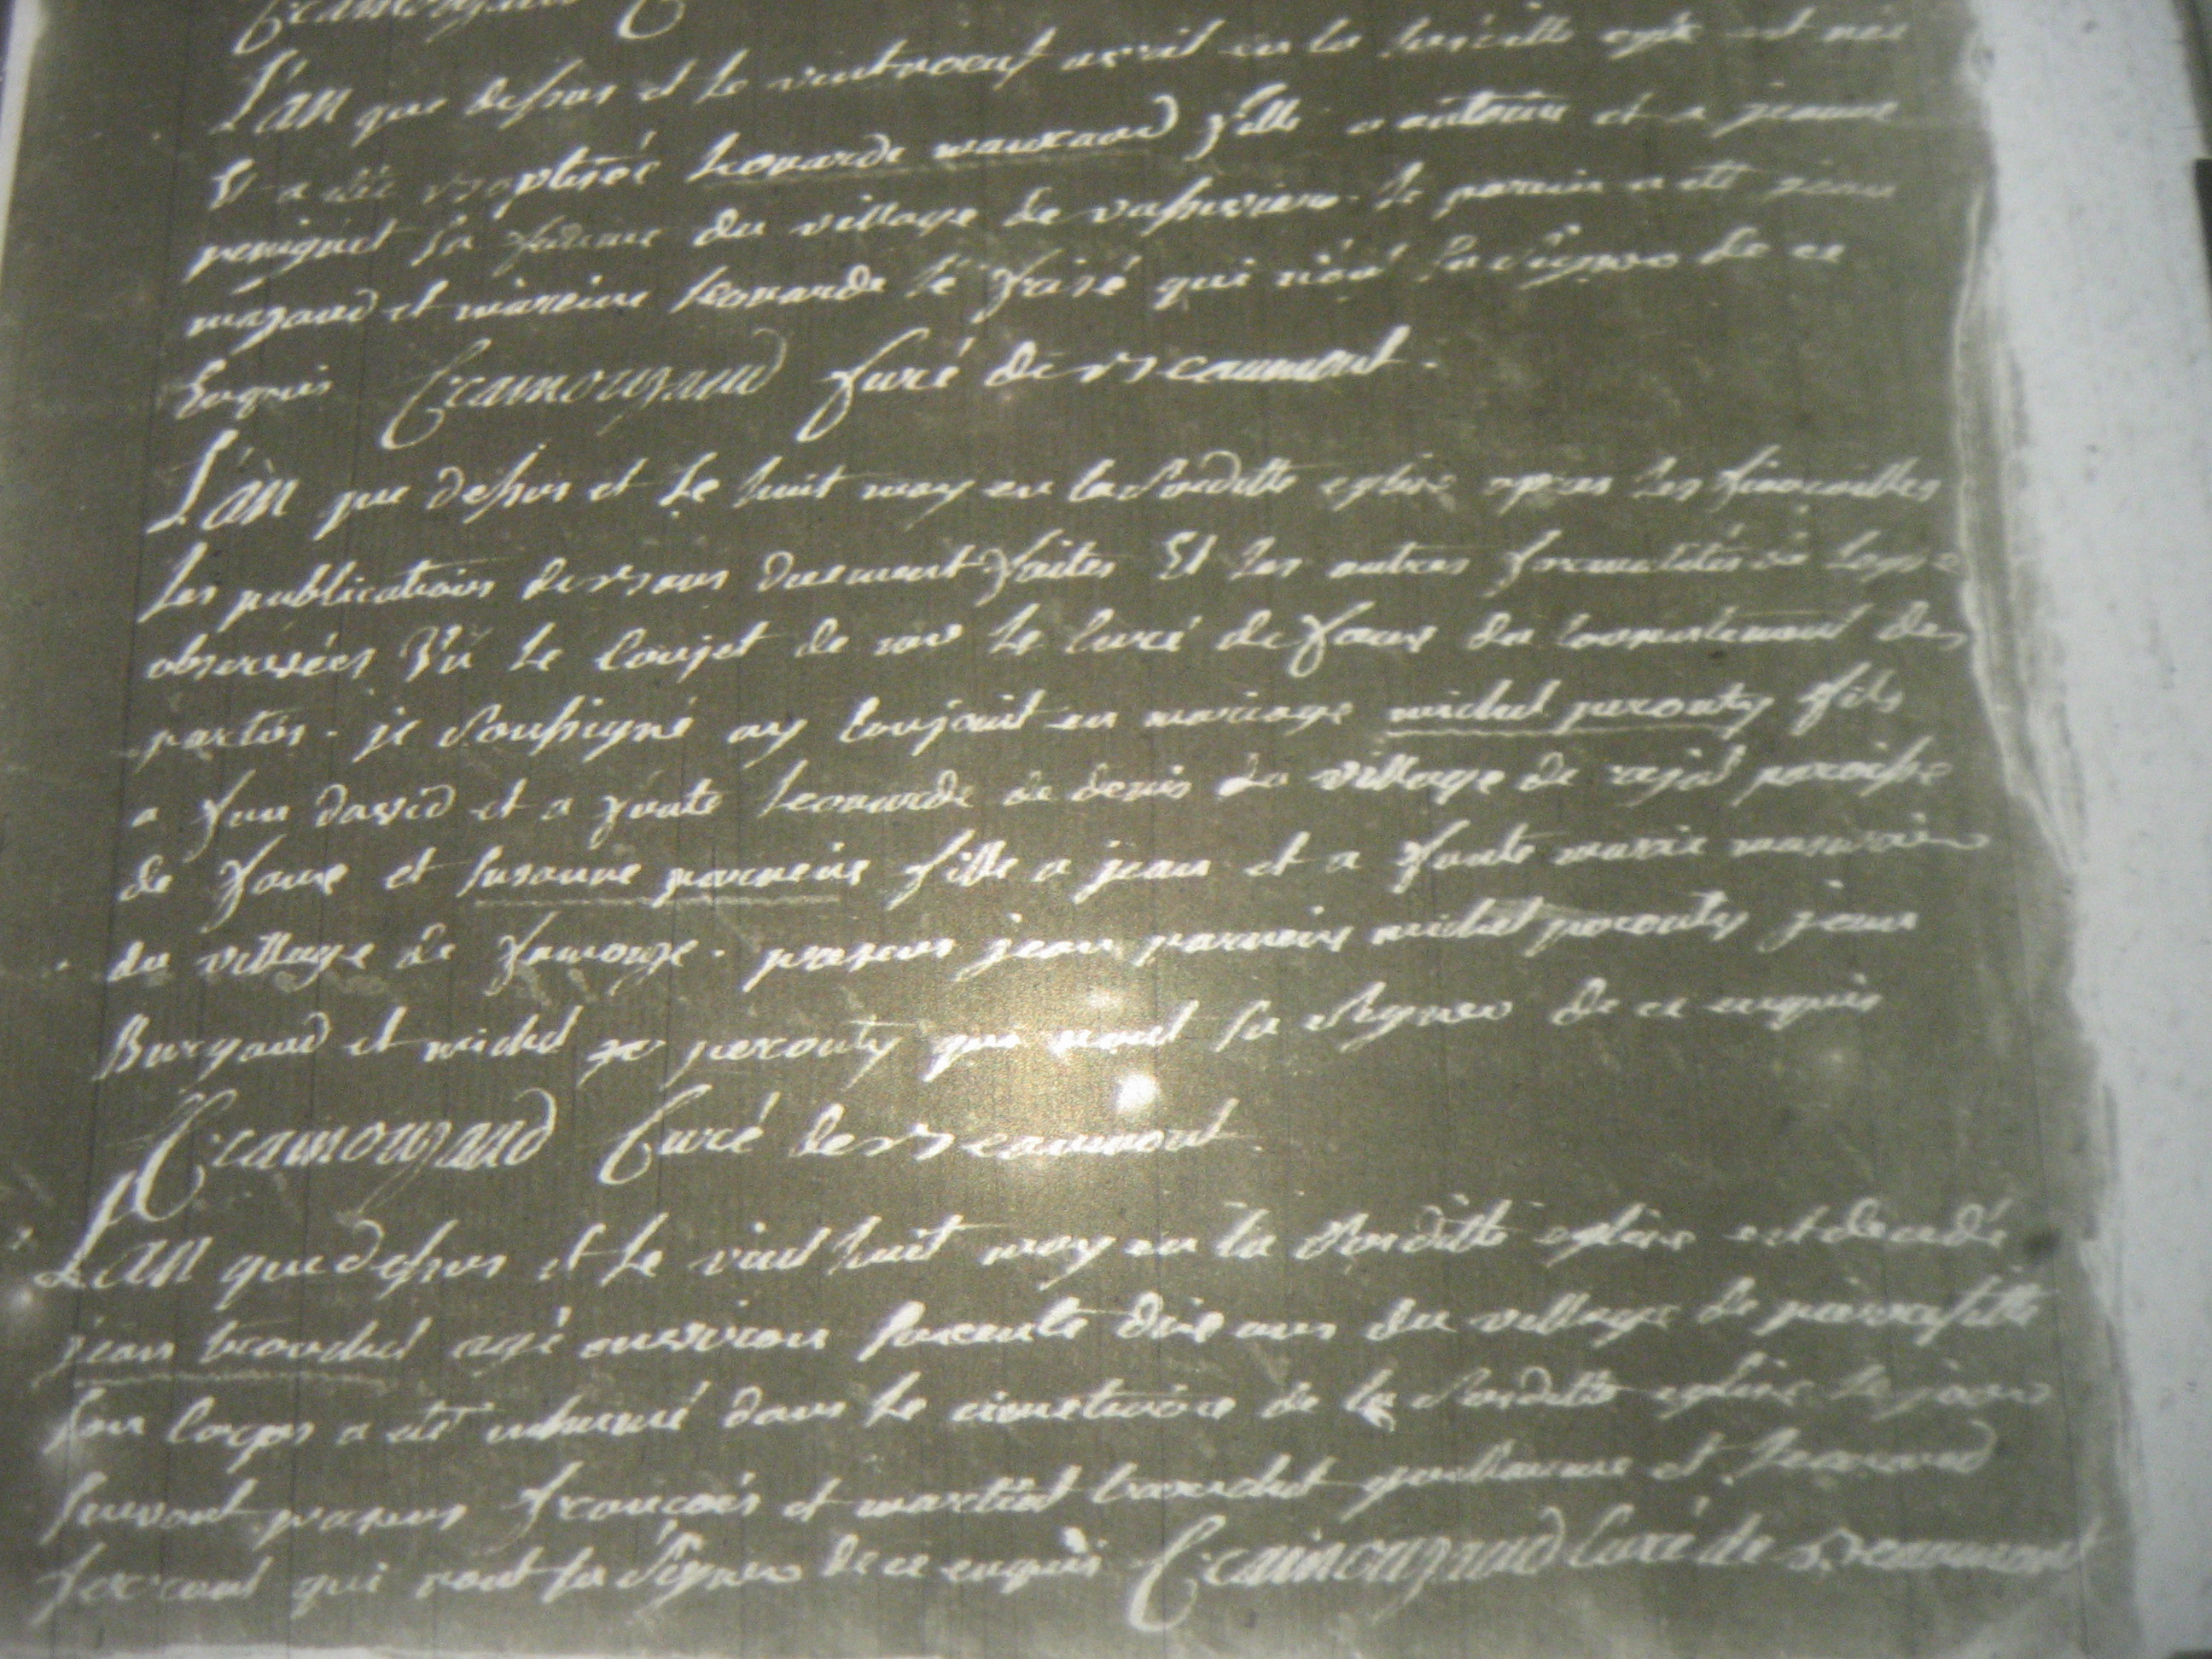 L'an que dessus et le vintneuf avril en la susditte est né
Et a été baptisée Leonarde mauraud fille a antoine et a jeanne
peniguet sa femme du village de vassiviere le parein a été jean
mazaud et mareine leonarde le qui n'ont su signer de ce
Enquis Curé de beaumont.
L'an que dessus et le huit may en la susditte eglise apres les fiancailles
les publications de bans duement faites Et les autres formalités de
observées Vu le de mr le curé de faux du consentement des
parties. je soussigné ay conjoint en mariage michel peronty fils
a feu david et a feüte leonarde de denis du village de paroisse
de faux et susanne parneix fille a jean et a feute marie
du village de. presens jean parneix michel peronty jean
Burgaud et michel peronty qui n'ont su signer de ce enquis
Curé de beaumont
L'an que dessus et le vint huit may en la susditte eglise est decedé
jean tranchet agé environ soixante dix ans du village de
son corps a été inhumé dans le cimetiere de la susditte eglise le jour
suivant presens francois et martial tranchet guillaume et leonard
ferrand qui n'ont su signer de ce enquis Curé de beaumont